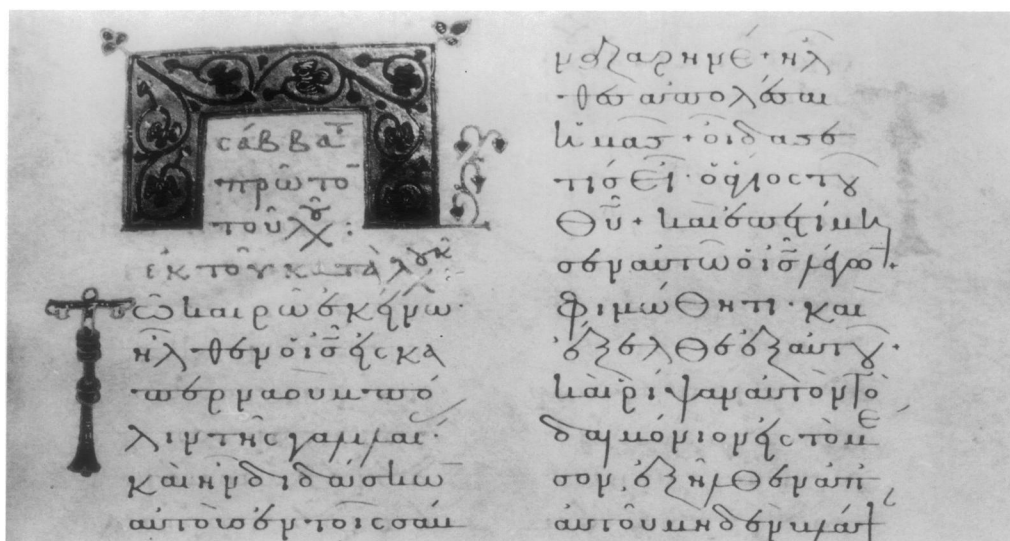 σάββα
πρῶτο
τοῦ
ἐκ τοῦ κατὰ λουκ
Τῶ καιρῶ ἐκείνω·
ἦλθεν ὁ ι̅ς̅ εἰς κα
περναουμ πό
λιν τῆς γαλιλαί·
καὶ ἦν διδάσκω
αὐτοὺς ἐν τοῖς σάβ
ναζαρηνέ· ἦλ
θες ἀπολέσαι
ἡμᾶς· οἶδά σε
τίς εἶ· ὁ ἅγιος τοῦ
θ̅υ̅· καὶ ἐπετίμη
σεν αὐτῶ ὁ ι̅ς̅ λέγω·
φιμώθητι· καὶ
ἔξελθε ἐξ αὐτοῦ·
καὶ ῥίψαν αὐτὸν τὸ
δαιμόνιον εἰς τὸ μέ
σον, ἐξῆλθεν ἀπ
αὐτοῦ μηδὲν βλάψ